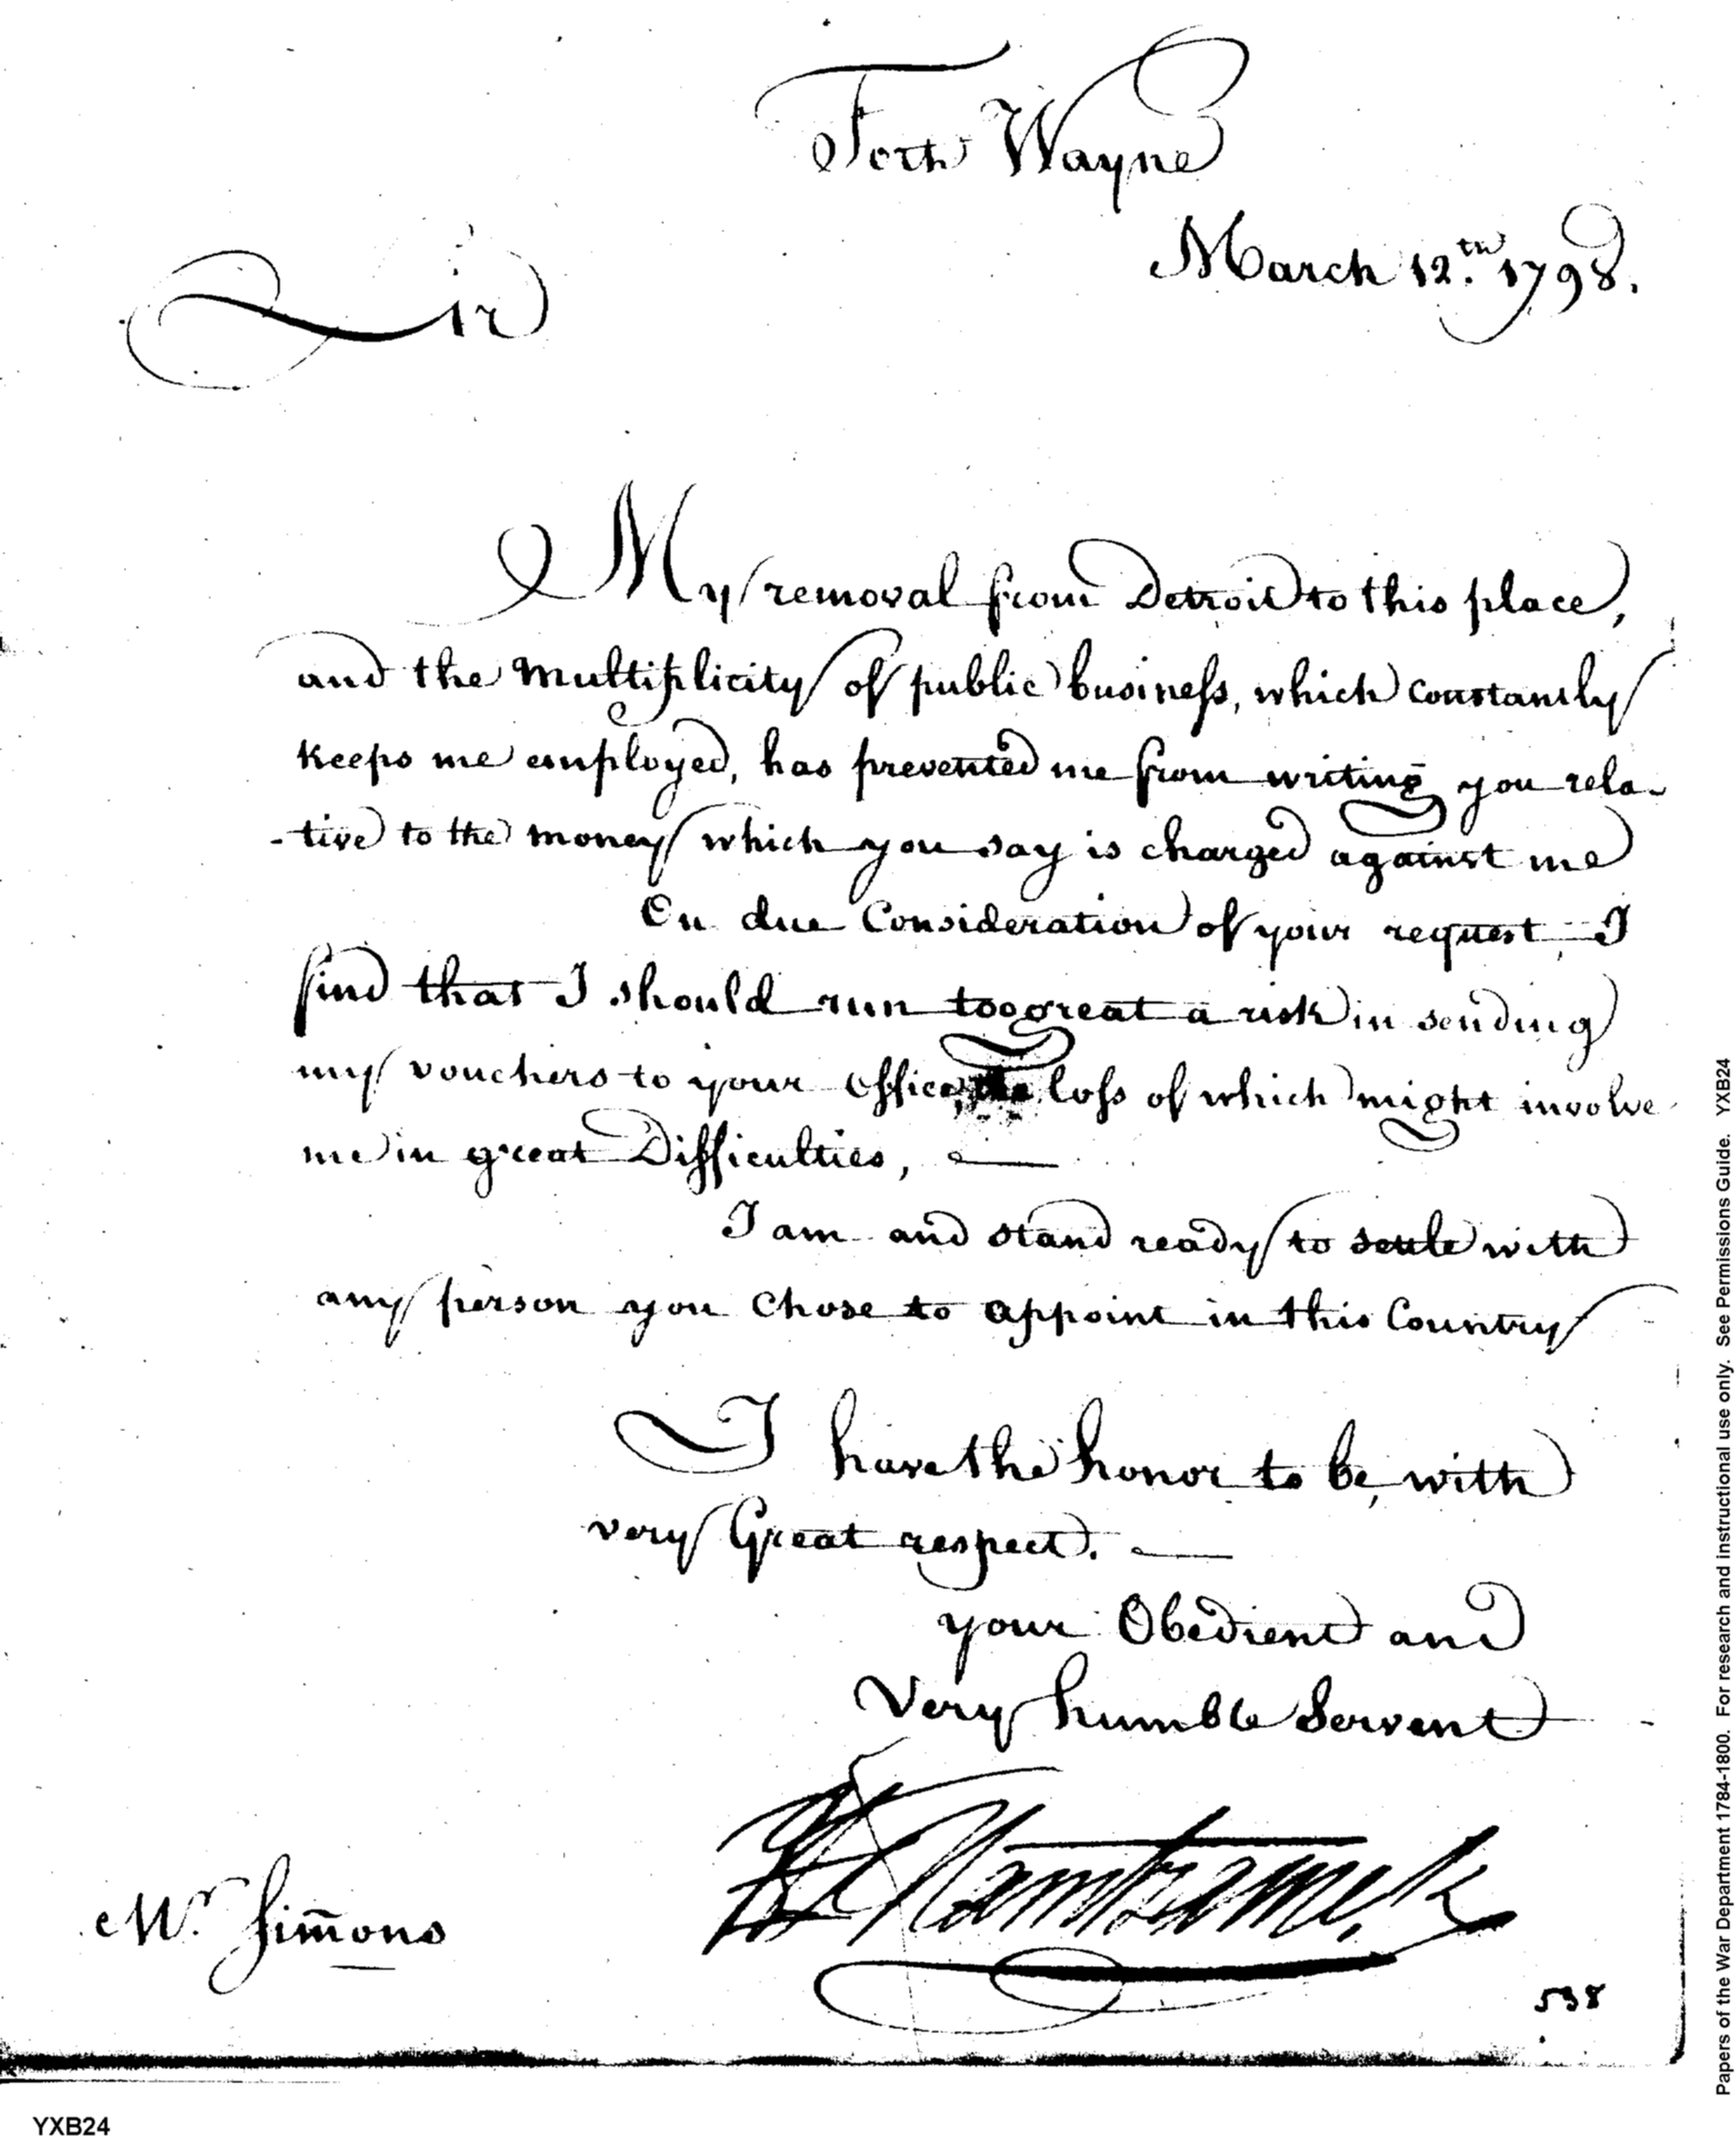 Forth Wayne
March 12.th 1798.
Sir
My removal from Detroit to this place,
and the Multiplicity of public business, which Constantly
keeps me employed, has prevented me from writing you rela-
-tive to the money which you say is charged against me
On due Consideration of your request, I
find that I should run too great a risk in sending
my vouchers to your Office, the loss of which might involve
me in great Difficulties,
I am and stand ready to settle with
any person you Chose to appoint in this Country
I have the honor to be, with
very Great respect.
your Obedient and
Very humble Servent
Hamtramck
Mr. Sim̄ons
538
YXB24
Papers of the War Department 1784-1800. For research and instructional use only. See Permissions Guide. YXB24